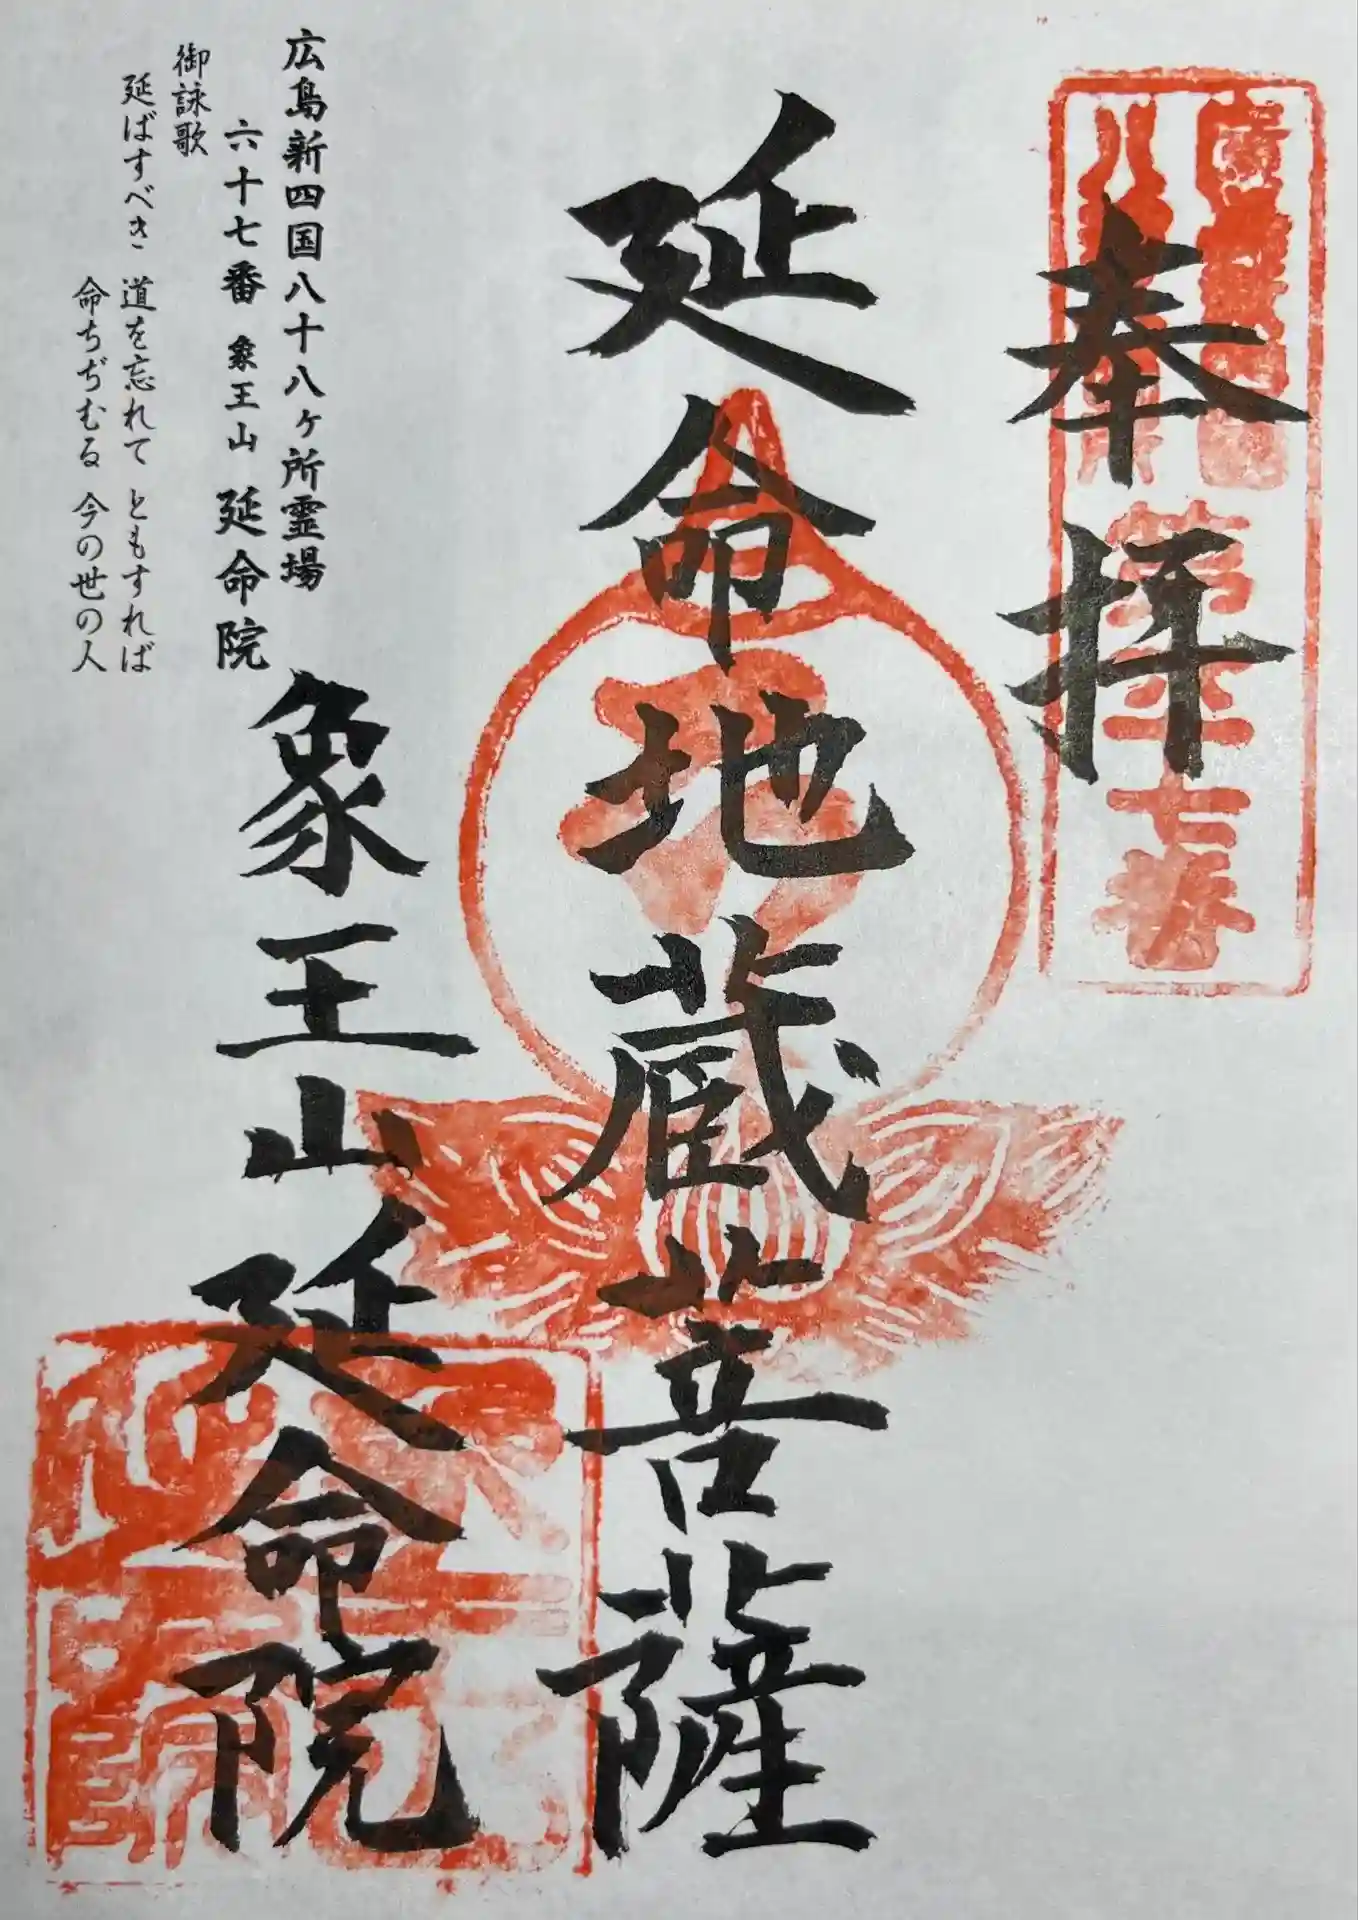 奉拝
第六十七番
延命地蔵菩薩
象王山延命院
広島新四国八十八ヶ所霊場
六十七番 象王山 延命院
御詠歌
延ばすべき 道を忘れて ともすれば
命ちぢむる 今の世の人